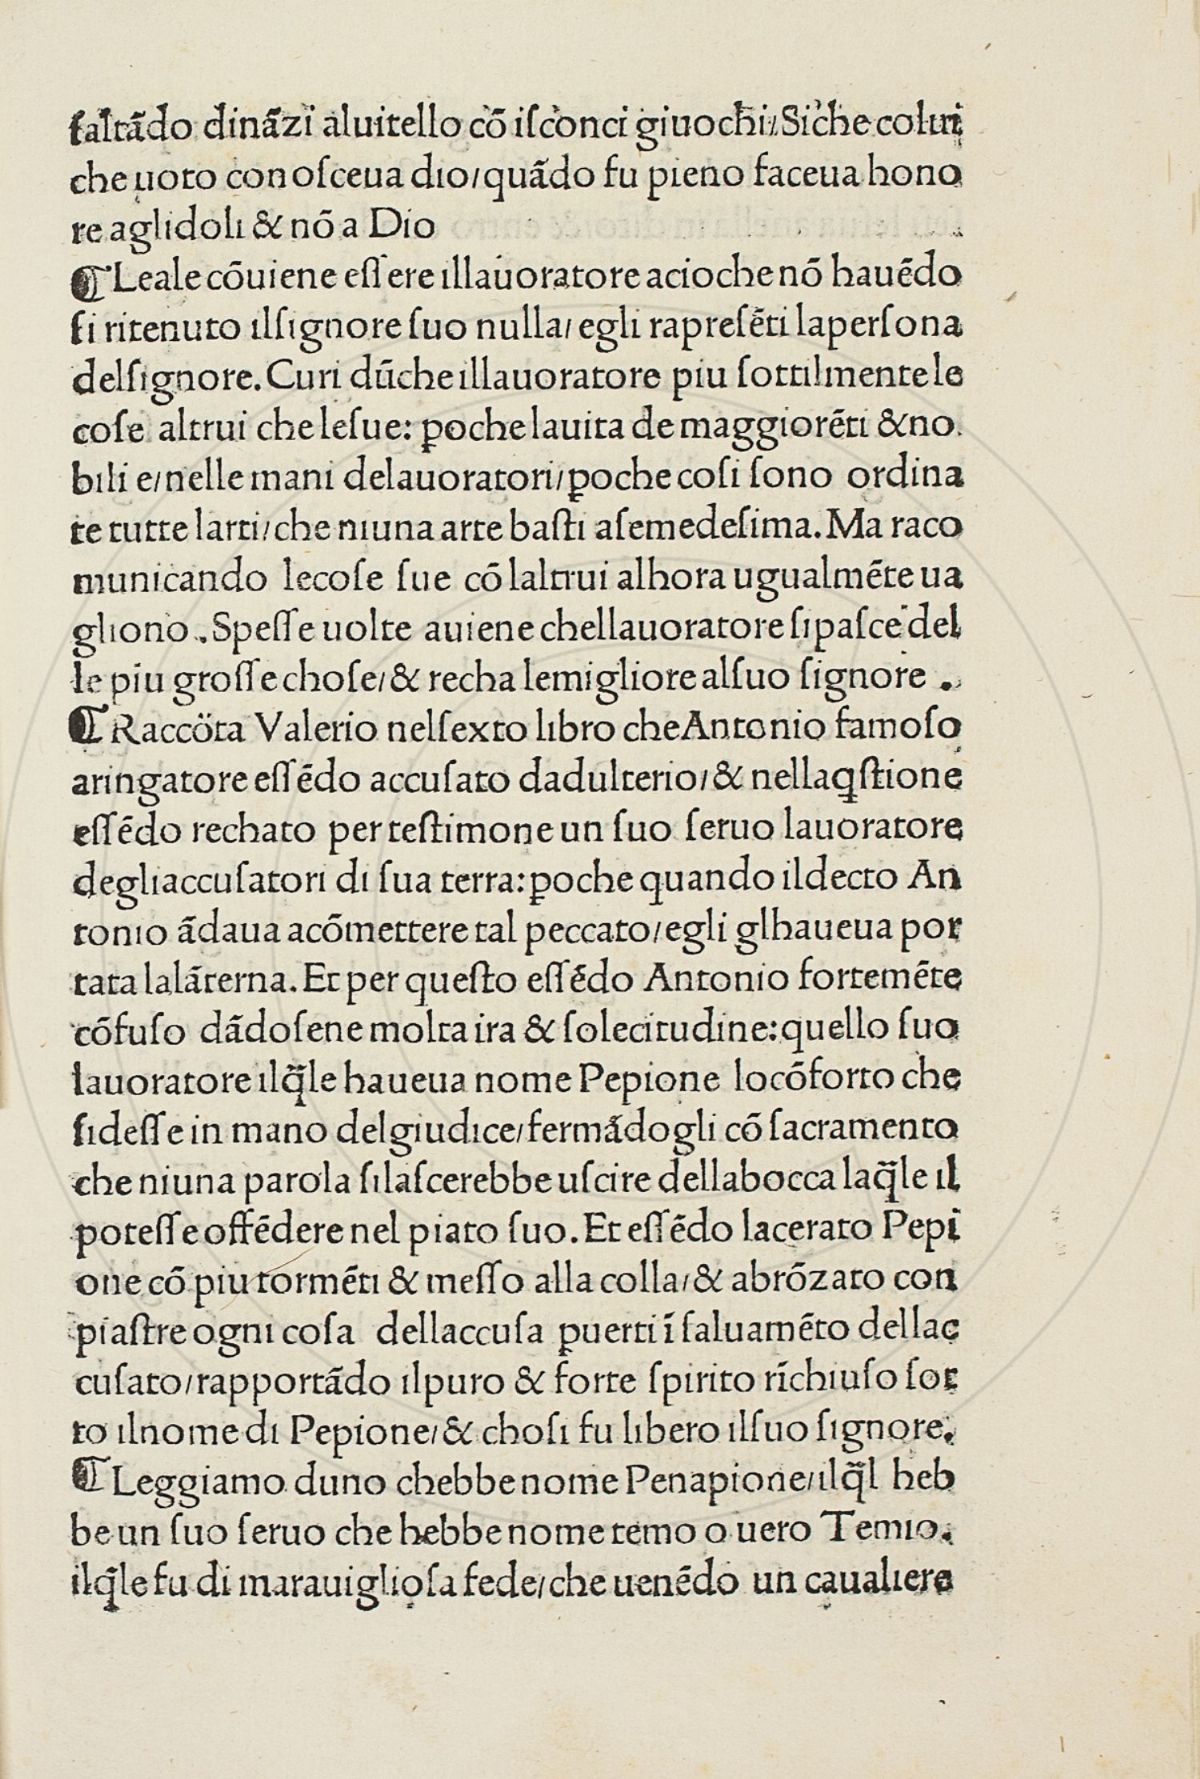 ſaltãdo dinãzi aluitello cõ iſconci giuochi: Siche colui
che uoto conoſceua dio/quãdo fu pieno faceua hono
re aglidoli & nõ a Dio
¶Leale cõuiene eſſere illauoratore acioche nõ hauẽdo
ſi ritenuto ilſignore ſuo nulla/egli rapreſẽti laperſona
delſignore. Curi dũche illauoratore piu ſottilmente le
coſe altrui che leſue: ꝑoche lauita de maggiorẽti & no
bili e/nelle mani delauoratori/ꝑoche coſi ſono ordina
te tutte larti/che niuna arte baſti aſemedeſima. Ma raco
municando lecoſe ſue cõ laltrui alhora ugualmẽte ua
gliono. Speſſe uolte auiene chellauoratore ſipaſce del
le piu groſſe choſe/& recha lemigliore alſuo ſignore .
¶Raccõta Valerio nelſexto libro che Antonio famoſo
aringatore eſſẽdo accuſato dadulterio/& nellaq̃ſtione
eſſẽdo rechato per teſtimone un ſuo ſeruo lauoratore
degliaccuſatori di ſua terra: ꝑoche quando ildecto An
tonio ãdaua acõmettere tal peccato/egli glhaueua por
tata lalãterna. Et per queſto eſſẽdo Antonio fortemẽte
cõfuſo dãdoſene molta ira & ſolecitudine: quello ſuo
lauoratore ilq̃le haueua nome Pepione locõforto che
ſideſſe in mano delgiudice/fermãdogli cõ ſacramento
che niuna parola ſilaſcerebbe uſcire dellabocca laq̃le il
poteſſe offẽdere nel piato ſuo. Et eſſẽdo lacerato Pepi
one cõ piu tormẽti & meſſo alla colla/& abrõzato con
piaſtre ogni coſa dellaccuſa ꝑuerti ĩ ſaluamẽto dellac
cuſato/rapportãdo ilpuro & forte ſpirito rĩchiuſo ſot
to ilnome di Pepione/& choſi fu libero ilſuo ſignore.
¶Leggiamo duno chebbe nome Penapione/ilq̃l heb
be un ſuo ſeruo che hebbe nome temo o uero Temio.
ilq̃le fu di marauiglioſa fede/che uenẽdo un caualiere